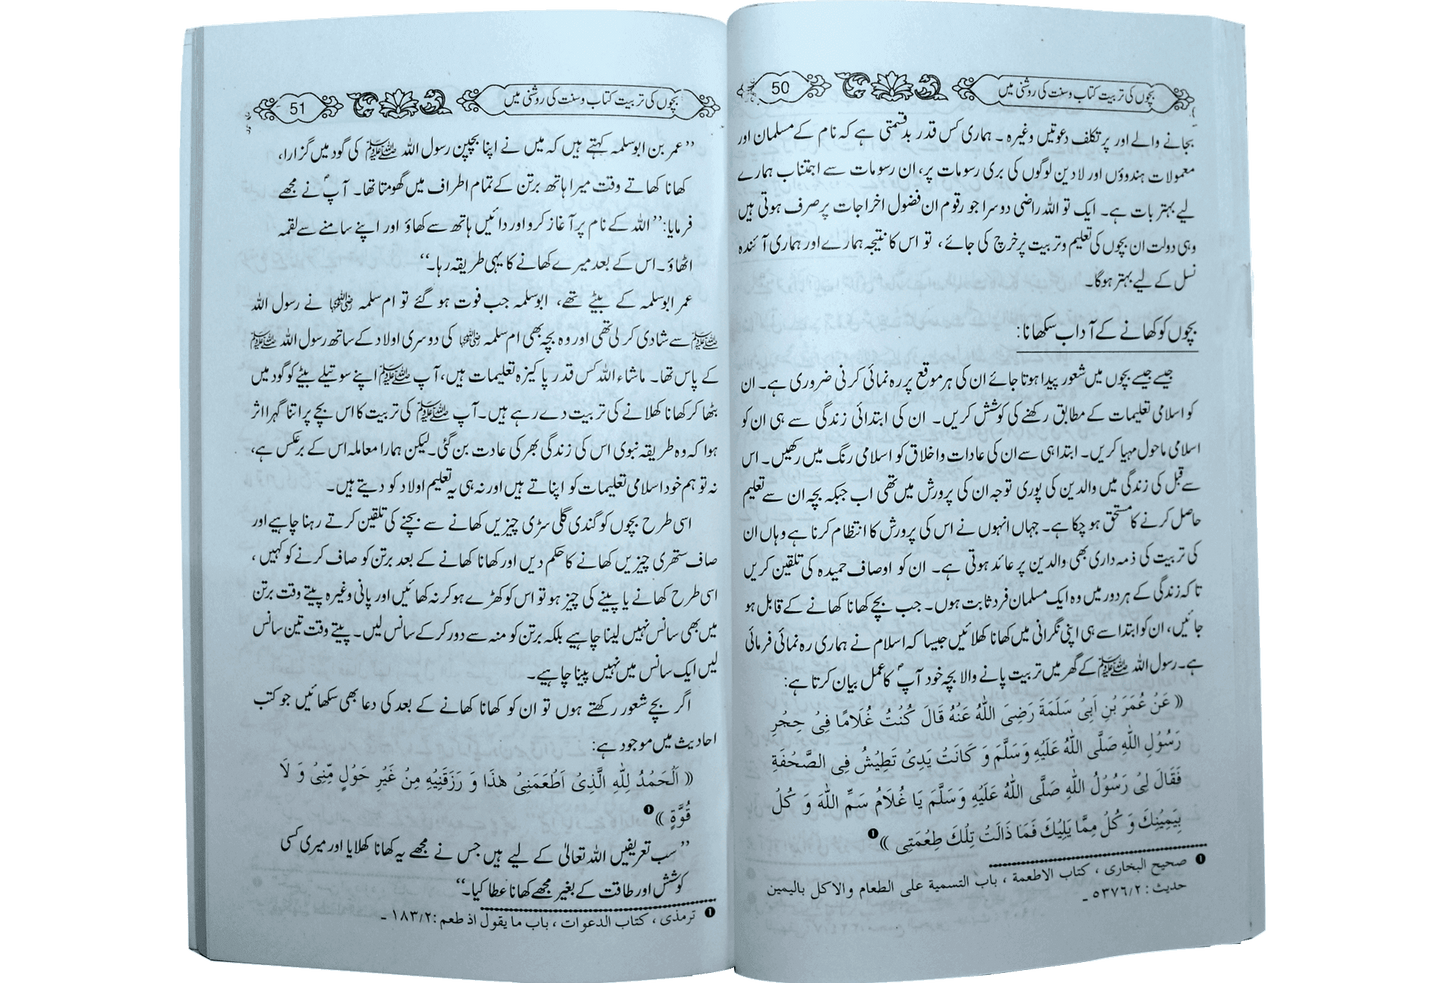 بچوں کی تربیت کتاب و سنت کی روشنی میں
50
بجانے والے اور پر تکلف دعوتیں وغیرہ۔ ہماری کس قدر بدقسمتی ہے کہ نام کے مسلمان اور
معمولات ہندوؤں اور لادین لوگوں کی بری رسومات پر، ان رسومات سے اجتناب ہمارے
لیے بہتر بات ہے۔ ایک تو اللہ راضی دوسرا جو رقوم ان فضول اخراجات پر صرف ہوتی ہیں
وہی دولت ان بچوں کی تعلیم و تربیت پر خرچ کی جائے، تو اس کا نتیجہ ہمارے اور ہماری آئندہ
نسل کے لیے بہتر ہوگا۔
بچوں کو کھانے کے آداب سکھانا:
جیسے جیسے بچوں میں شعور پیدا ہوتا جائے ان کی ہر موقع پر رہ نمائی کرنی ضروری ہے۔ ان
کو اسلامی تعلیمات کے مطابق رکھنے کی کوشش کریں۔ ان کی ابتدائی زندگی سے ہی ان کو
اسلامی ماحول مہیا کریں۔ ابتدا ہی سے ان کی عادات و اخلاق کو اسلامی رنگ میں رکھیں۔ اس
سے قبل کی زندگی میں والدین کی پوری توجہ ان کی پرورش میں تھی اب جبکہ بچہ ان سے تعلیم
حاصل کرنے کا مستحق ہو چکا ہے۔ جہاں انہوں نے اس کی پرورش کا انتظام کرنا ہے وہاں ان
کی تربیت کی ذمہ داری بھی والدین پر عائد ہوتی ہے۔ ان کو اوصاف حمیدہ کی تلقین کریں
تا کہ زندگی کے ہر دور میں وہ ایک مسلمان فرد ثابت ہوں۔ جب بچے کھانا کھانے کے قابل ہو
جائیں، ان کو ابتدا سے ہی اپنی نگرانی میں کھانا کھلائیں جیسا کہ اسلام نے ہماری رہ نمائی فرمائی
ہے۔ رسول اللہ ﷺ کے گھر میں تربیت پانے والا بچہ خود آپؐ کا عمل بیان کرتا ہے:
(( عَنْ عُمَرَ بْنِ اَبِیْ سَلَمَةَ رَضِیَ اللّٰهُ عَنْهُ قَالَ كُنْتُ غُلَامًا فِیْ حِجْرِ
رَسُوْلِ اللّٰهِ صَلَّی اللّٰهُ عَلَیْهِ وَسَلَّمَ وَ كَانَتْ یَدِیْ تَطِیْشُ فِی الصَّحْفَةِ
فَقَالَ لِیْ رَسُوْلُ اللّٰهِ صَلَّی اللّٰهُ عَلَیْهِ وَسَلَّمَ یَا غُلَامُ سَمِّ اللّٰهَ وَ كُلْ
بِیَمِیْنِكَ وَ كُلْ مِمَّا یَلِیْكَ فَمَا ذَالَتْ تِلْكَ طِعْمَتِی ))❶
❶ صحیح البخاری، کتاب الاطعمة، باب التسمیة علی الطعام والاکل بالیمین
حدیث: ۵۳۷۶/۲ ۔
بچوں کی تربیت کتاب و سنت کی روشنی میں
51
’’عمر بن ابوسلمہ کہتے ہیں کہ میں نے اپنا بچپن رسول اللہ ﷺ کی گود میں گزارا،
کھانا کھاتے وقت میرا ہاتھ برتن کے تمام اطراف میں گھومتا تھا۔ آپؐ نے مجھے
فرمایا: ’’اللہ کے نام پر آغاز کرو اور دائیں ہاتھ سے کھاؤ اور اپنے سامنے سے لقمہ
اٹھاؤ۔ اس کے بعد میرے کھانے کا یہی طریقہ رہا۔‘‘
عمر ابوسلمہ کے بیٹے تھے، ابوسلمہ جب فوت ہو گئے تو ام سلمہ رضی اللہ عنہا نے رسول اللہ
ﷺ سے شادی کر لی تھی اور وہ بچہ بھی ام سلمہ رضی اللہ عنہا کی دوسری اولاد کے ساتھ رسول اللہ ﷺ
کے پاس تھا۔ ماشاء اللہ کس قدر پاکیزہ تعلیمات ہیں، آپ ﷺ اپنے سوتیلے بیٹے کو گود میں
بٹھا کر کھانا کھلانے کی تربیت دے رہے ہیں۔ آپ ﷺ کی تربیت کا اس بچے پر اتنا گہرا اثر
ہوا کہ وہ طریقہ نبوی اس کی زندگی بھر کی عادت بن گئی۔ لیکن ہمارا معاملہ اس کے برعکس ہے،
نہ تو ہم خود اسلامی تعلیمات کو اپناتے ہیں اور نہ ہی یہ تعلیم اولاد کو دیتے ہیں۔
اسی طرح بچوں کو گندی گلی سڑی چیزیں کھانے سے بچنے کی تلقین کرتے رہنا چاہیے اور
صاف ستھری چیزیں کھانے کا حکم دیں اور کھانا کھانے کے بعد برتن کو صاف کرنے کو کہیں،
اسی طرح کھانے یا پینے کی چیز ہو تو اس کو کھڑے ہو کر نہ کھائیں اور پانی وغیرہ پیتے وقت برتن
میں بھی سانس نہیں لینا چاہیے بلکہ برتن کو منہ سے دور کر کے سانس لیں۔ پیتے وقت تین سانس
لیں ایک سانس میں نہیں پینا چاہیے۔
اگر بچے شعور رکھتے ہوں تو ان کو کھانا کھانے کے بعد کی دعا بھی سکھائیں جو کتب
احادیث میں موجود ہے:
(( اَلْحَمْدُ لِلّٰهِ الَّذِیْ اَطْعَمَنِیْ هٰذَا وَ رَزَقَنِیْهِ مِنْ غَیْرِ حَوْلٍ مِّنِّیْ وَ لَا
قُوَّةٍ ))❶
’’سب تعریفیں اللہ تعالیٰ کے لیے ہیں جس نے مجھے یہ کھانا کھلایا اور میری کسی
کوشش اور طاقت کے بغیر مجھے کھانا عطا کیا۔‘‘
❶ ترمذی، کتاب الدعوات، باب ما یقول اذ طعم: ۱۸۳/۲ ۔